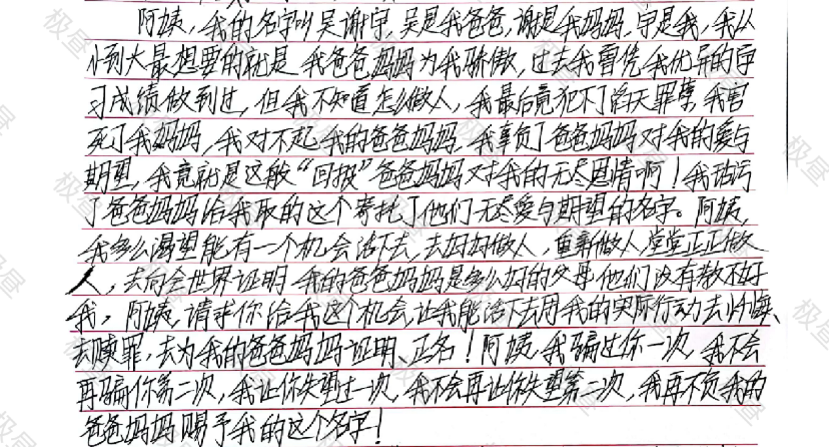 阿姨,我的名字叫吴谢宇,吴是我爸爸,谢是我妈妈,宇是我,我从
小到大最想要的就是我爸爸妈妈为我骄傲,过去我曾凭我优异的学
习成绩做到过,但我不知道怎么做人,我最后竟犯下了滔天罪孽,我害
死了我妈妈,我对不起我的爸爸妈妈,我辜负了爸爸妈妈对我的爱与
期望,我竟就是这般“回报”爸爸妈妈对我的无尽恩情啊!我玷污
了爸爸妈妈给我取的这个寄托了他们无尽爱与期望的名字。阿姨,
我多么渴望能有一个机会活下去,去好好做人,重新做人,堂堂正正做
人,去向全世界证明我的爸爸妈妈是多么好的父母,他们没有教不好
我,阿姨,请求你给我这个机会,让我能活下去用我的实际行动去忏悔、
去赎罪,去为我的爸爸妈妈证明、正名!阿姨,我骗过你一次,我不会
再骗你第二次,我让你失望过一次,我不会再让你失望第二次,我再不负我的
爸爸妈妈赐予我的这个名字!
极昼